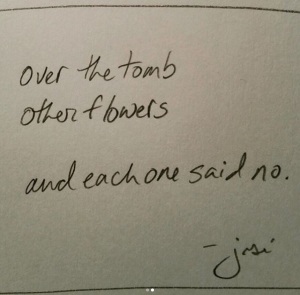 over the tomb
other flowers
and each one said no.
- josi